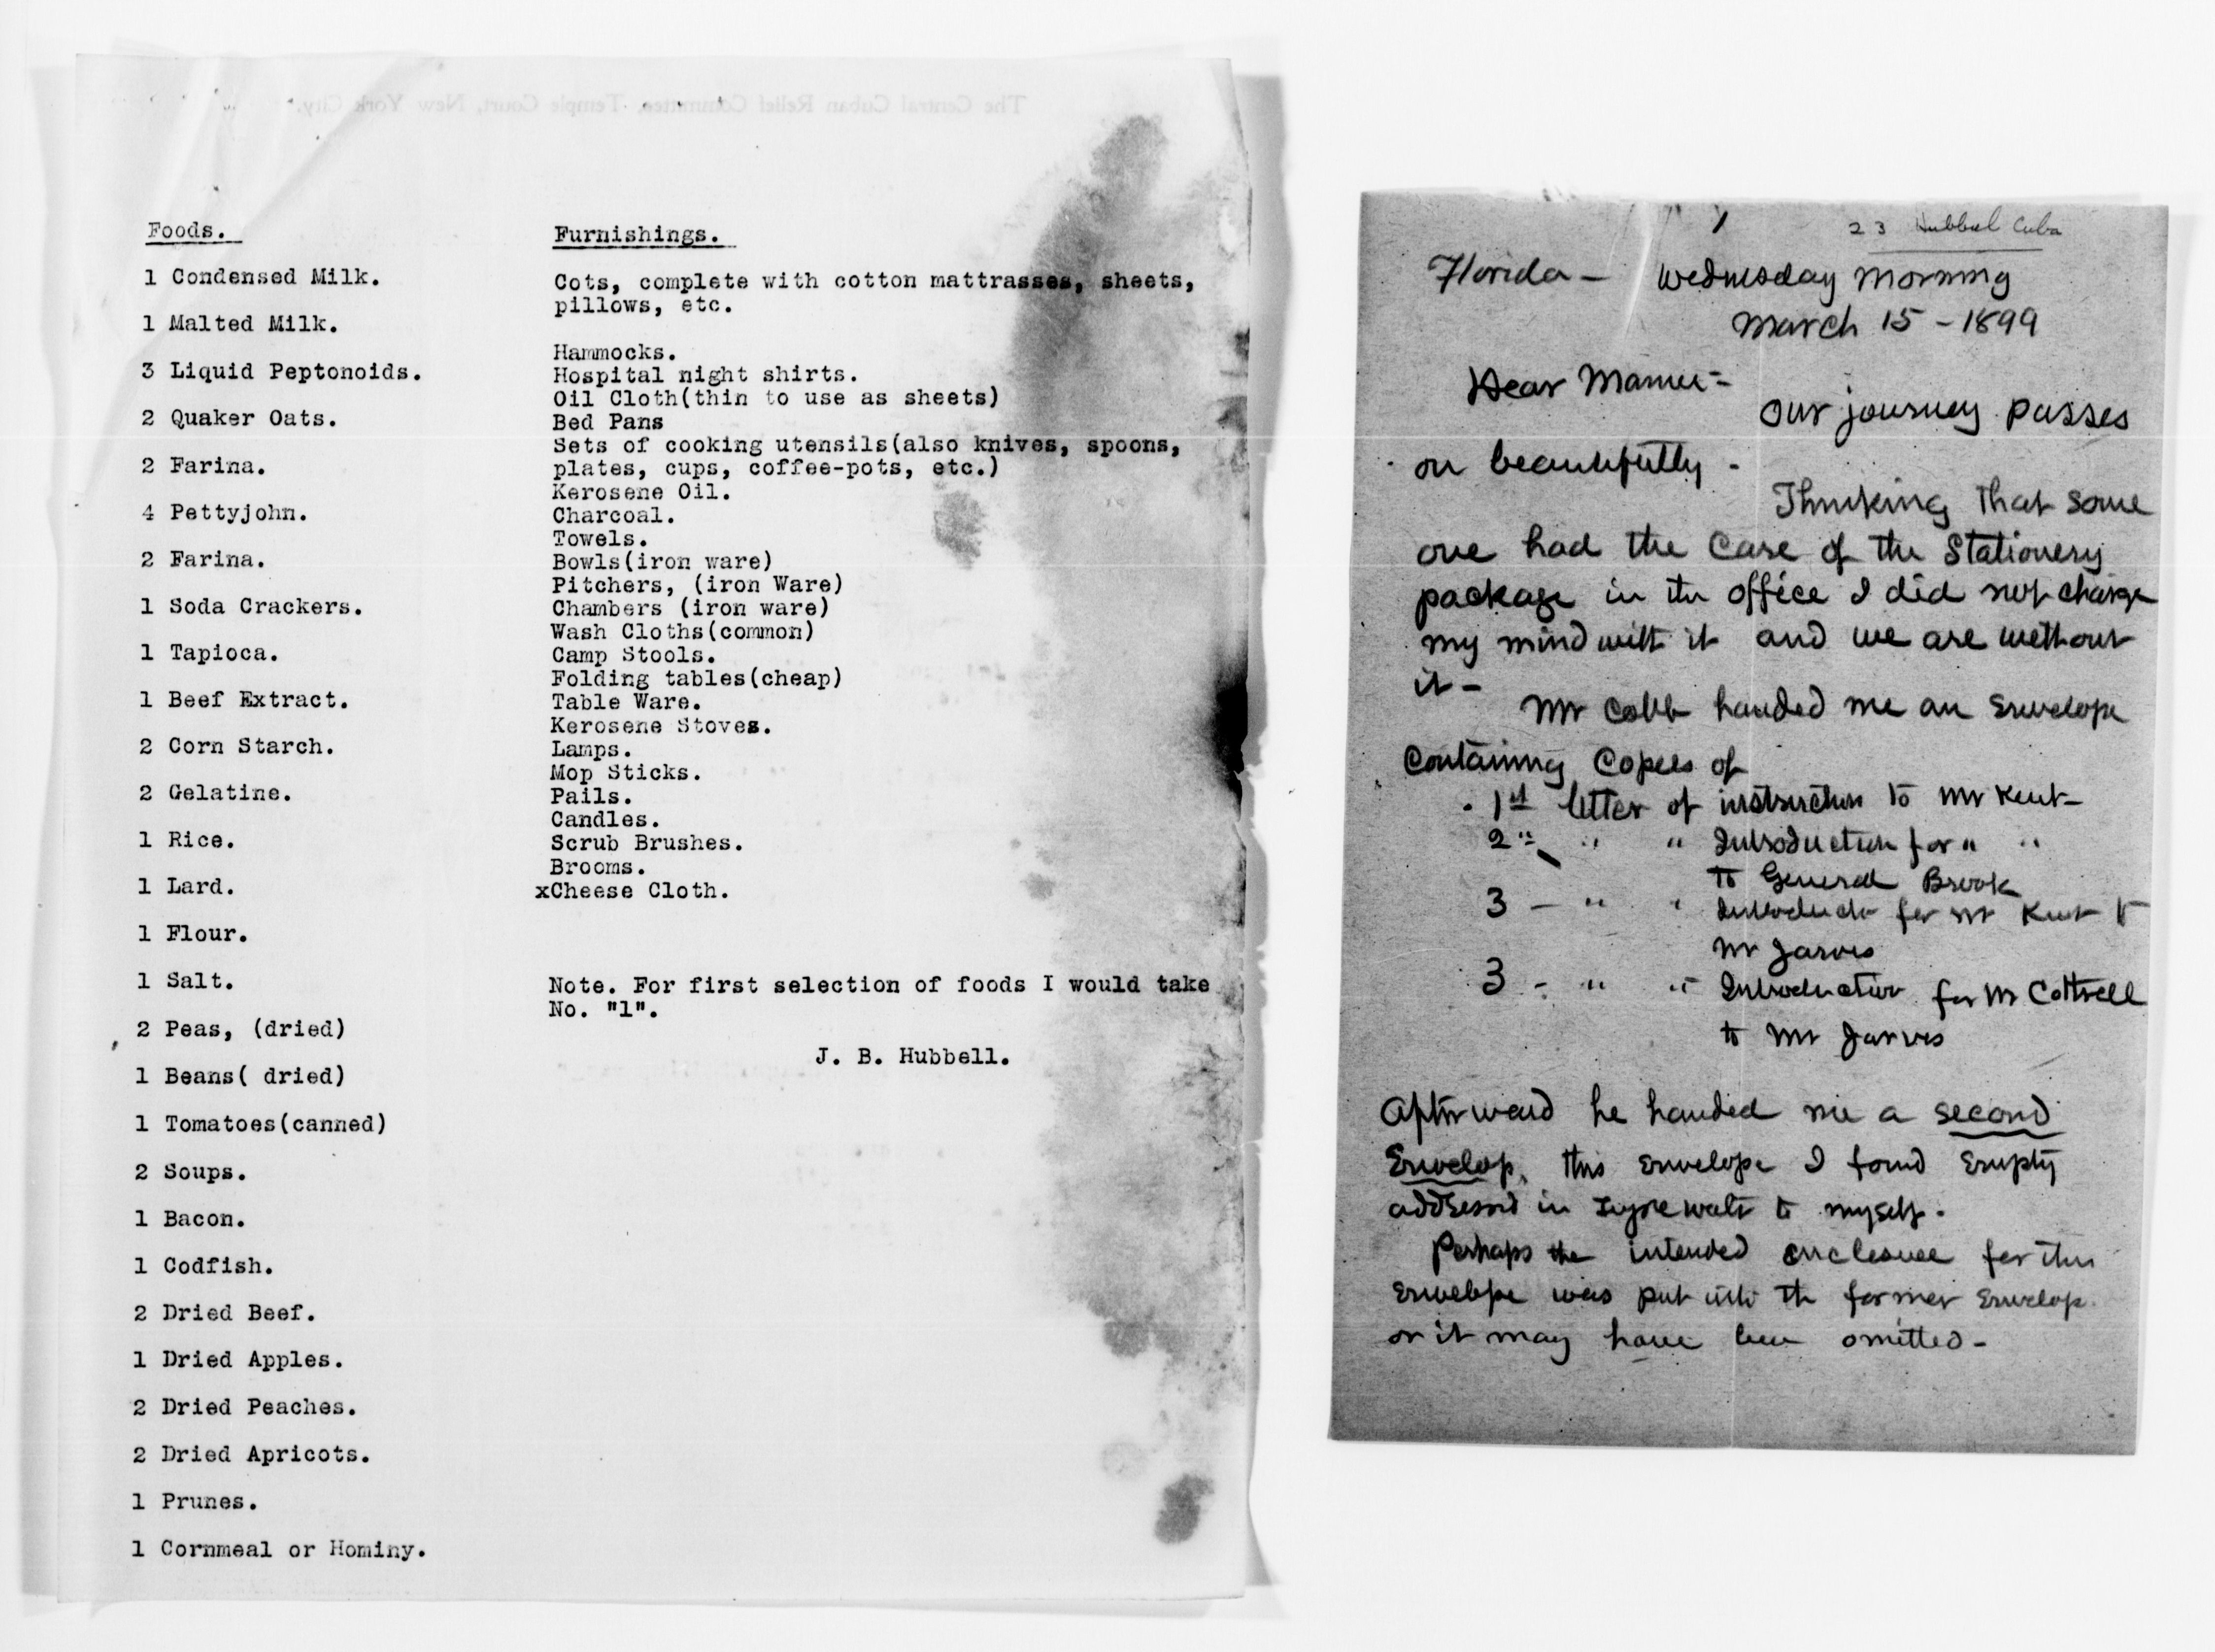 The Central Cuban Relief Committee, Temple Court, New York City.
Foods.
1 Condensed Milk.
1 Malted Milk.
3 Liquid Peptonoids.
2 Quaker Oats.
2 Farina.
4 Pettyjohn.
2 Farina.
1 Soda Crackers.
1 Tapioca.
1 Beef Extract.
2 Corn Starch.
2 Gelatine.
1 Rice.
1 Lard.
1 Flour.
1 Salt.
2 Peas, (dried)
1 Beans( dried)
1 Tomatoes(canned)
2 Soups.
1 Bacon.
1 Codfish.
2 Dried Beef.
1 Dried Apples.
2 Dried Peaches.
2 Dried Apricots.
1 Prunes.
1 Cornmeal or Hominy.
Furnishings.
Cots, complete with cotton mattrasses, sheets,
pillows, etc.
Hammocks.
Hospital night shirts.
Oil Cloth(thin to use as sheets)
Bed Pans
Sets of cooking utensils(also knives, spoons,
plates, cups, coffee-pots, etc.)
Kerosene Oil.
Charcoal.
Towels.
Bowls(iron ware)
Pitchers, (iron Ware)
Chambers (iron ware)
Wash Cloths(common)
Camp Stools.
Folding tables(cheap)
Table Ware.
Kerosene Stoves.
Lamps.
Mop Sticks.
Pails.
Candles.
Scrub Brushes.
Brooms.
xCheese Cloth.
Note. For first selection of foods I would take
No. "1".
J. B. Hubbell.
23 Hubbell Cuba
Florida - Wednesday Morning
March 15 - 1899
Dear Mamie -
Our journey passes
on beautifully -
Thinking that some
one had the Care of the Stationery
package in the office I did not charge
my mind with it and we are without
it -
Mr Cobb handed me an Envelope
Containing Copies of
1st letter of instruction to Mr Kent -
2" " " Introduction for " "
to General Brook
3 - " " Introduction for Mr Kent to
Mr Jarvis
3 - " " Introduction for Mr Cottrell
to Mr Jarvis
Afterward he handed me a second
Envelop, this envelope I found Empty
addressed in to myself.
Perhaps the intended enclosure for this
Envelope was put into the former Envelop
or it may have been omitted -